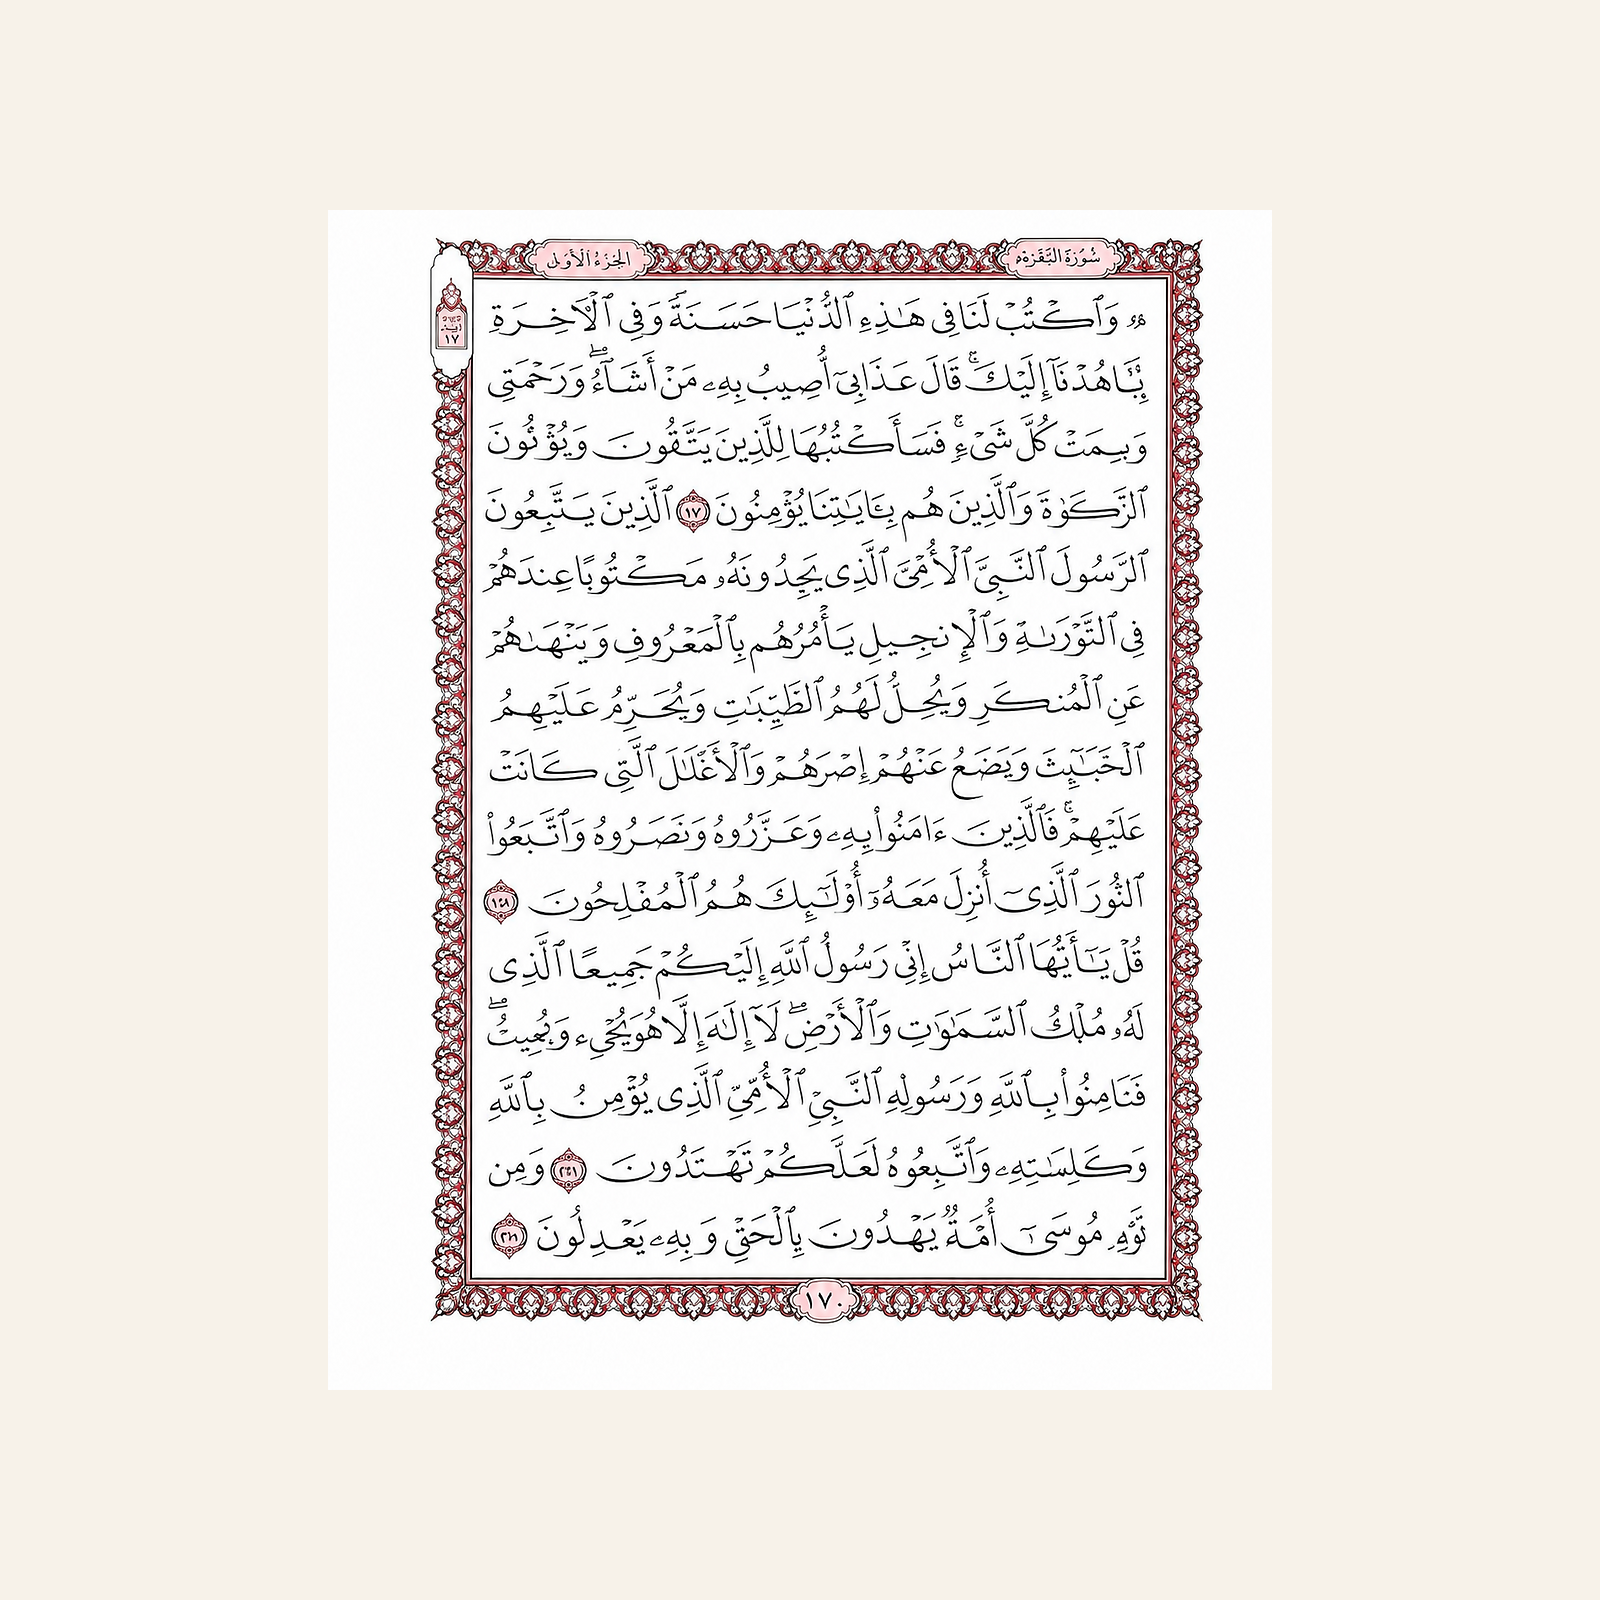 سُورَةُ البَقَرَة
الجُزءُ الأَوَّل
١٧
وَٱكۡتُبۡ لَنَا فِي هَٰذِهِ ٱلدُّنۡيَا حَسَنَةٗ وَفِي ٱلۡأٓخِرَةِ
إِلَيۡكَۚ قَالَ عَذَابِيٓ أُصِيبُ بِهِۦ مَنۡ أَشَآءُۖ وَرَحۡمَتِي
كُلَّ شَيۡءٖۚ فَسَأَكۡتُبُهَا لِلَّذِينَ يَتَّقُونَ وَيُؤۡتُونَ
ٱلزَّكَوٰةَ وَٱلَّذِينَ هُم بِـَٔايَٰتِنَا يُؤۡمِنُونَ ١٧ ٱلَّذِينَ يَتَّبِعُونَ
ٱلرَّسُولَ ٱلنَّبِيَّ ٱلۡأُمِّيَّ ٱلَّذِي يَجِدُونَهُۥ مَكۡتُوبًا عِندَهُمۡ
فِي ٱلتَّوۡرَىٰةِ وَٱلۡإِنجِيلِ يَأۡمُرُهُم بِٱلۡمَعۡرُوفِ وَيَنۡهَىٰهُمۡ
عَنِ ٱلۡمُنكَرِ وَيُحِلُّ لَهُمُ ٱلظَّيِّبَٰتِ وَيُحَرِّمُ عَلَيۡهِمُ
ٱلۡخَبَٰٓئِثَ وَيَضَعُ عَنۡهُمۡ إِصۡرَهُمۡ وَٱلۡأَغۡلَٰلَ ٱلَّتِي كَانَتۡ
عَلَيۡهِمۡۚ فَٱلَّذِينَ ءَامَنُواْ بِهِۦ وَعَزَّرُوهُ وَنَصَرُوهُ وَٱتَّبَعُواْ
ٱلنُّورَ ٱلَّذِيٓ أُنزِلَ مَعَهُۥٓ أُوْلَٰٓئِكَ هُمُ ٱلۡمُفۡلِحُونَ
قُلۡ يَٰٓأَيُّهَا ٱلنَّاسُ إِنِّي رَسُولُ ٱللَّهِ إِلَيۡكُمۡ جَمِيعًا ٱلَّذِي
لَهُۥ مُلۡكُ ٱلسَّمَٰوَٰتِ وَٱلۡأَرۡضِۖ لَآ إِلَٰهَ إِلَّا هُوَ يُحۡيِۦ
فَـَٔامِنُواْ بِٱللَّهِ وَرَسُولِهِ ٱلنَّبِيِّ ٱلۡأُمِّيِّ ٱلَّذِي يُؤۡمِنُ بِٱللَّهِ
وَٱتَّبِعُوهُ لَعَلَّكُمۡ تَهۡتَدُونَ وَمِن
مُوسَىٰٓ أُمَّةٞ يَهۡدُونَ بِٱلۡحَقِّ وَبِهِۦ يَعۡدِلُونَ
١٧٠